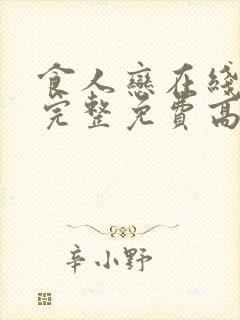 食人戀在綫
完整免費高
辛小野